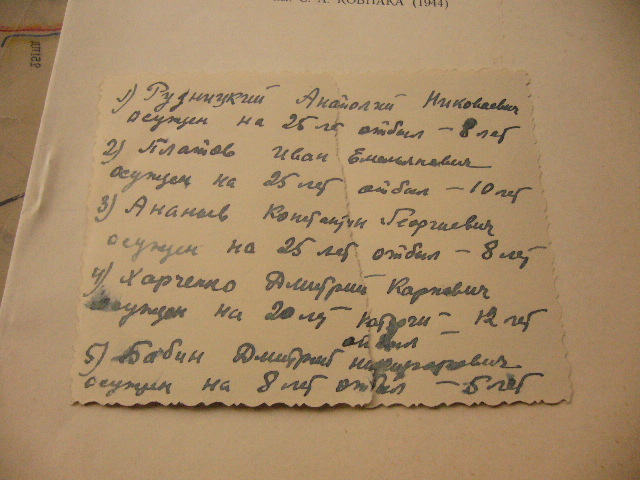 им. С. А. КОВПАКА (1944)
1) Рудницкий Анатолий Николаевич
осужден на 25 лет отбыл – 8 лет
2) Платов Иван Емельянович
осужден на 25 лет отбыл – 10 лет
3) Ананьев Константин Георгиевич
осужден на 25 лет отбыл – 8 лет
4) Харченко Дмитрий Карпович
осужден на 20 лет каторги – 12 лет
отбыл
5) Бабин Дмитрий
осужден на 8 лет отбыл – 5 лет